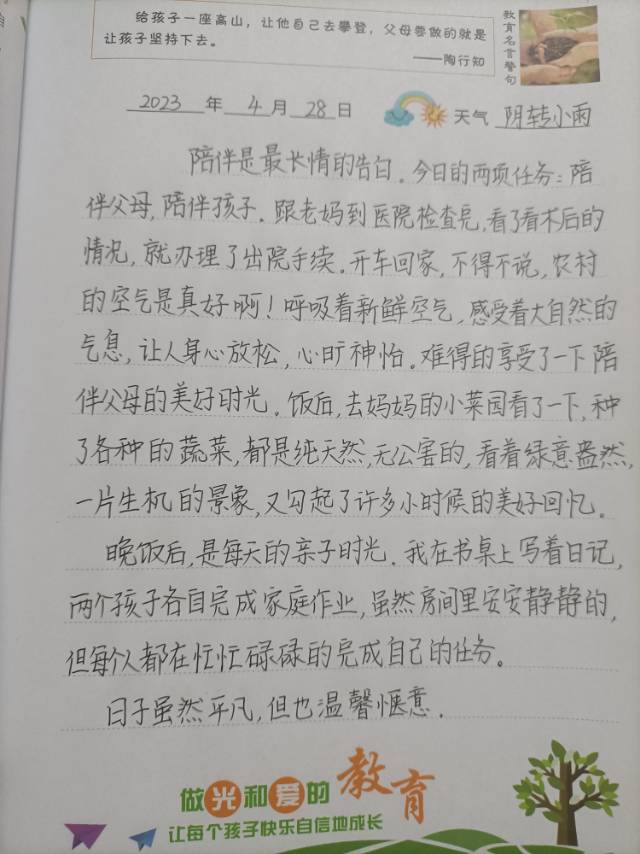 给孩子一座高山，让他自己去攀登，父母要做的就是
让孩子坚持下去。
——陶行知
教育名言警句
2023 年 4 月 28 日 天气 阴转小雨
陪伴是最长情的告白。今日的两项任务：陪
伴父母，陪伴孩子。跟老妈到医院检查完，看了看术后的
情况，就办理了出院手续。开车回家，不得不说，农村
的空气是真好啊！呼吸着新鲜空气，感受着大自然的
气息，让人身心放松，心旷神怡。难得的享受了一下陪
伴父母的美好时光。饭后，去妈妈的小菜园看了一下，种
了各种的蔬菜，都是纯天然，无公害的，看着绿意盎然，
一片生机的景象，又勾起了许多小时候的美好回忆。
晚饭后，是每天的亲子时光。我在书桌上写着日记，
两个孩子各自完成家庭作业，虽然房间里安安静静的，
但每个人都在忙忙碌碌的完成自己的任务。
日子虽然平凡，但也温馨惬意。
做光和爱的教育
让每个孩子快乐自信地成长